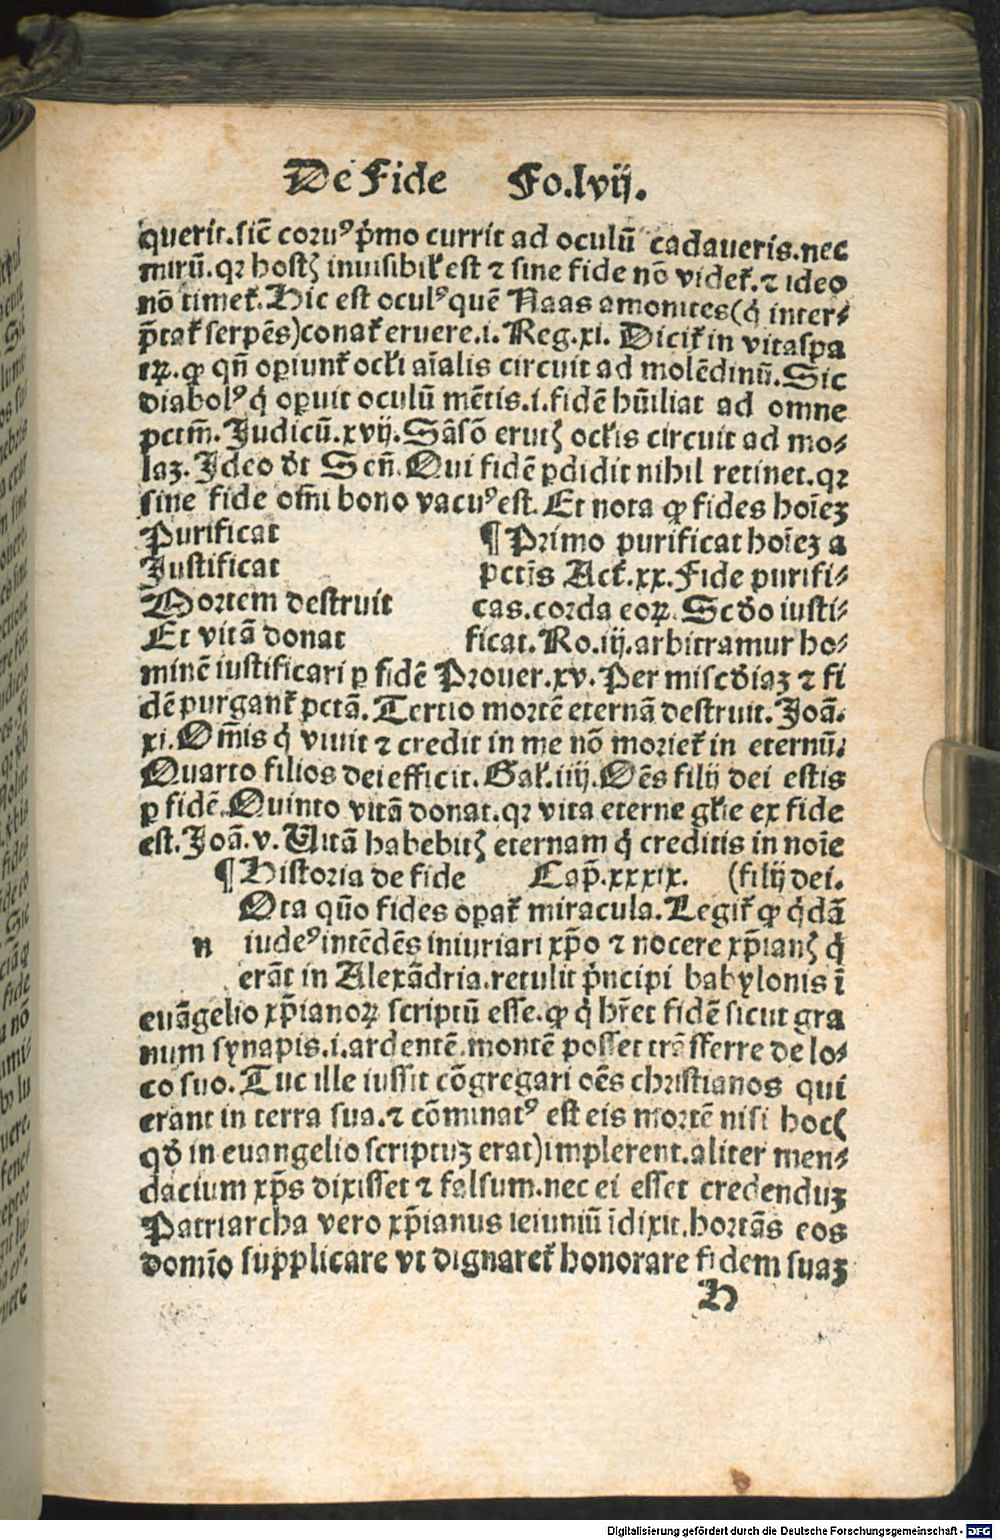 De Fide Fo.lvij.
querit.sic̄ coruꝰ p̄mo currit ad oculū cadaueris.nec
mirū.qꝛ hostꝭ inuisibił est ⁊ sine fide nō videt᷑.⁊ ideo
nō timet᷑.Hic est oculꝰ quē Naas amonites(q̇ inter⸗
p̄tat᷑ serpēs)conat᷑ eruere.i.Reg.xi. Dicit᷑ in vitaspa
trꝝ.ꝙ qn̄ oꝑiunt᷑ ocl̵i aīalis circuit ad molēdinū.Sic
diabolꝰ q̇ oꝑuit oculū mētis.i.fidē hūiliat ad omne
pctm̄.Judicū.xvij.Sāsō erutꝭ ocl̵is circuit ad mo⸗
laꝫ.Ideo dt̄ Scn̄.Qui fidē ꝑdidit nihil retinet.qꝛ
sine fide om̄i bono vacuꝰ est.Et nota ꝙ fides hoīeꝫ
Purificat ¶Primo purificat hoīeꝫ a
Justificat pctīs Act᷑.xx.Fide purifi⸗
Mortem destruit cas.corda eoꝝ.Scd̄o iusti⸗
Et vitā donat ficat.Ro.iij.arbitramur ho⸗
minē iustificari ꝑ fidē Prouer.xv.Per misc̄diaꝫ ⁊ fi
dē purgant᷑ pctā.Tertio mortē eternā destruit.Joā.
xi.Om̄is q̇ viuit ⁊ credit in me nō moriet᷑ in eternū.
Quarto filios dei efficit.Gał.iiij.Oēs filij dei estis
ꝑ fidē.Quinto vitā donat.qꝛ vita eterne gl̵ie ex fide
est.Joā.v.Uitā habebitꝭ eternam q̇ creditis in noīe
¶Historia de fide Cap̄.xxxix. (filij dei.
Ota quō fides oꝑat᷑ miracula.Legit᷑ ꝙ q̇dā
n iudeꝰ intēdēs iniuriari xp̄o ⁊ nocere xp̄ianꝭ q̇
erāt in Alexādria.retulit p̄ncipi babylonis ī
euāgelio xp̄ianoꝝ scriptū esse.ꝙ q̇ hr̄et fidē sicut gra
num synapis.i.ardentē.montē posset trāsferre de lo⸗
co suo.Tūc ille iussit cōgregari oēs christianos qui
erant in terra sua.⁊ cōminatꝰ est eis mortē nisi hoc(
qd̄ in euangelio scriptuꝫ erat)implerent.aliter men⸗
dacium xp̄s dixisset ⁊ falsum.nec ei esset credenduꝫ
Patriarcha vero xp̄ianus ieiuniū īdixit.hortās eos
domīo supplicare vt dignaret᷑ honorare fidem suaꝫ
H
Digitalisierung gefördert durch die Deutsche Forschungsgemeinschaft - DFG